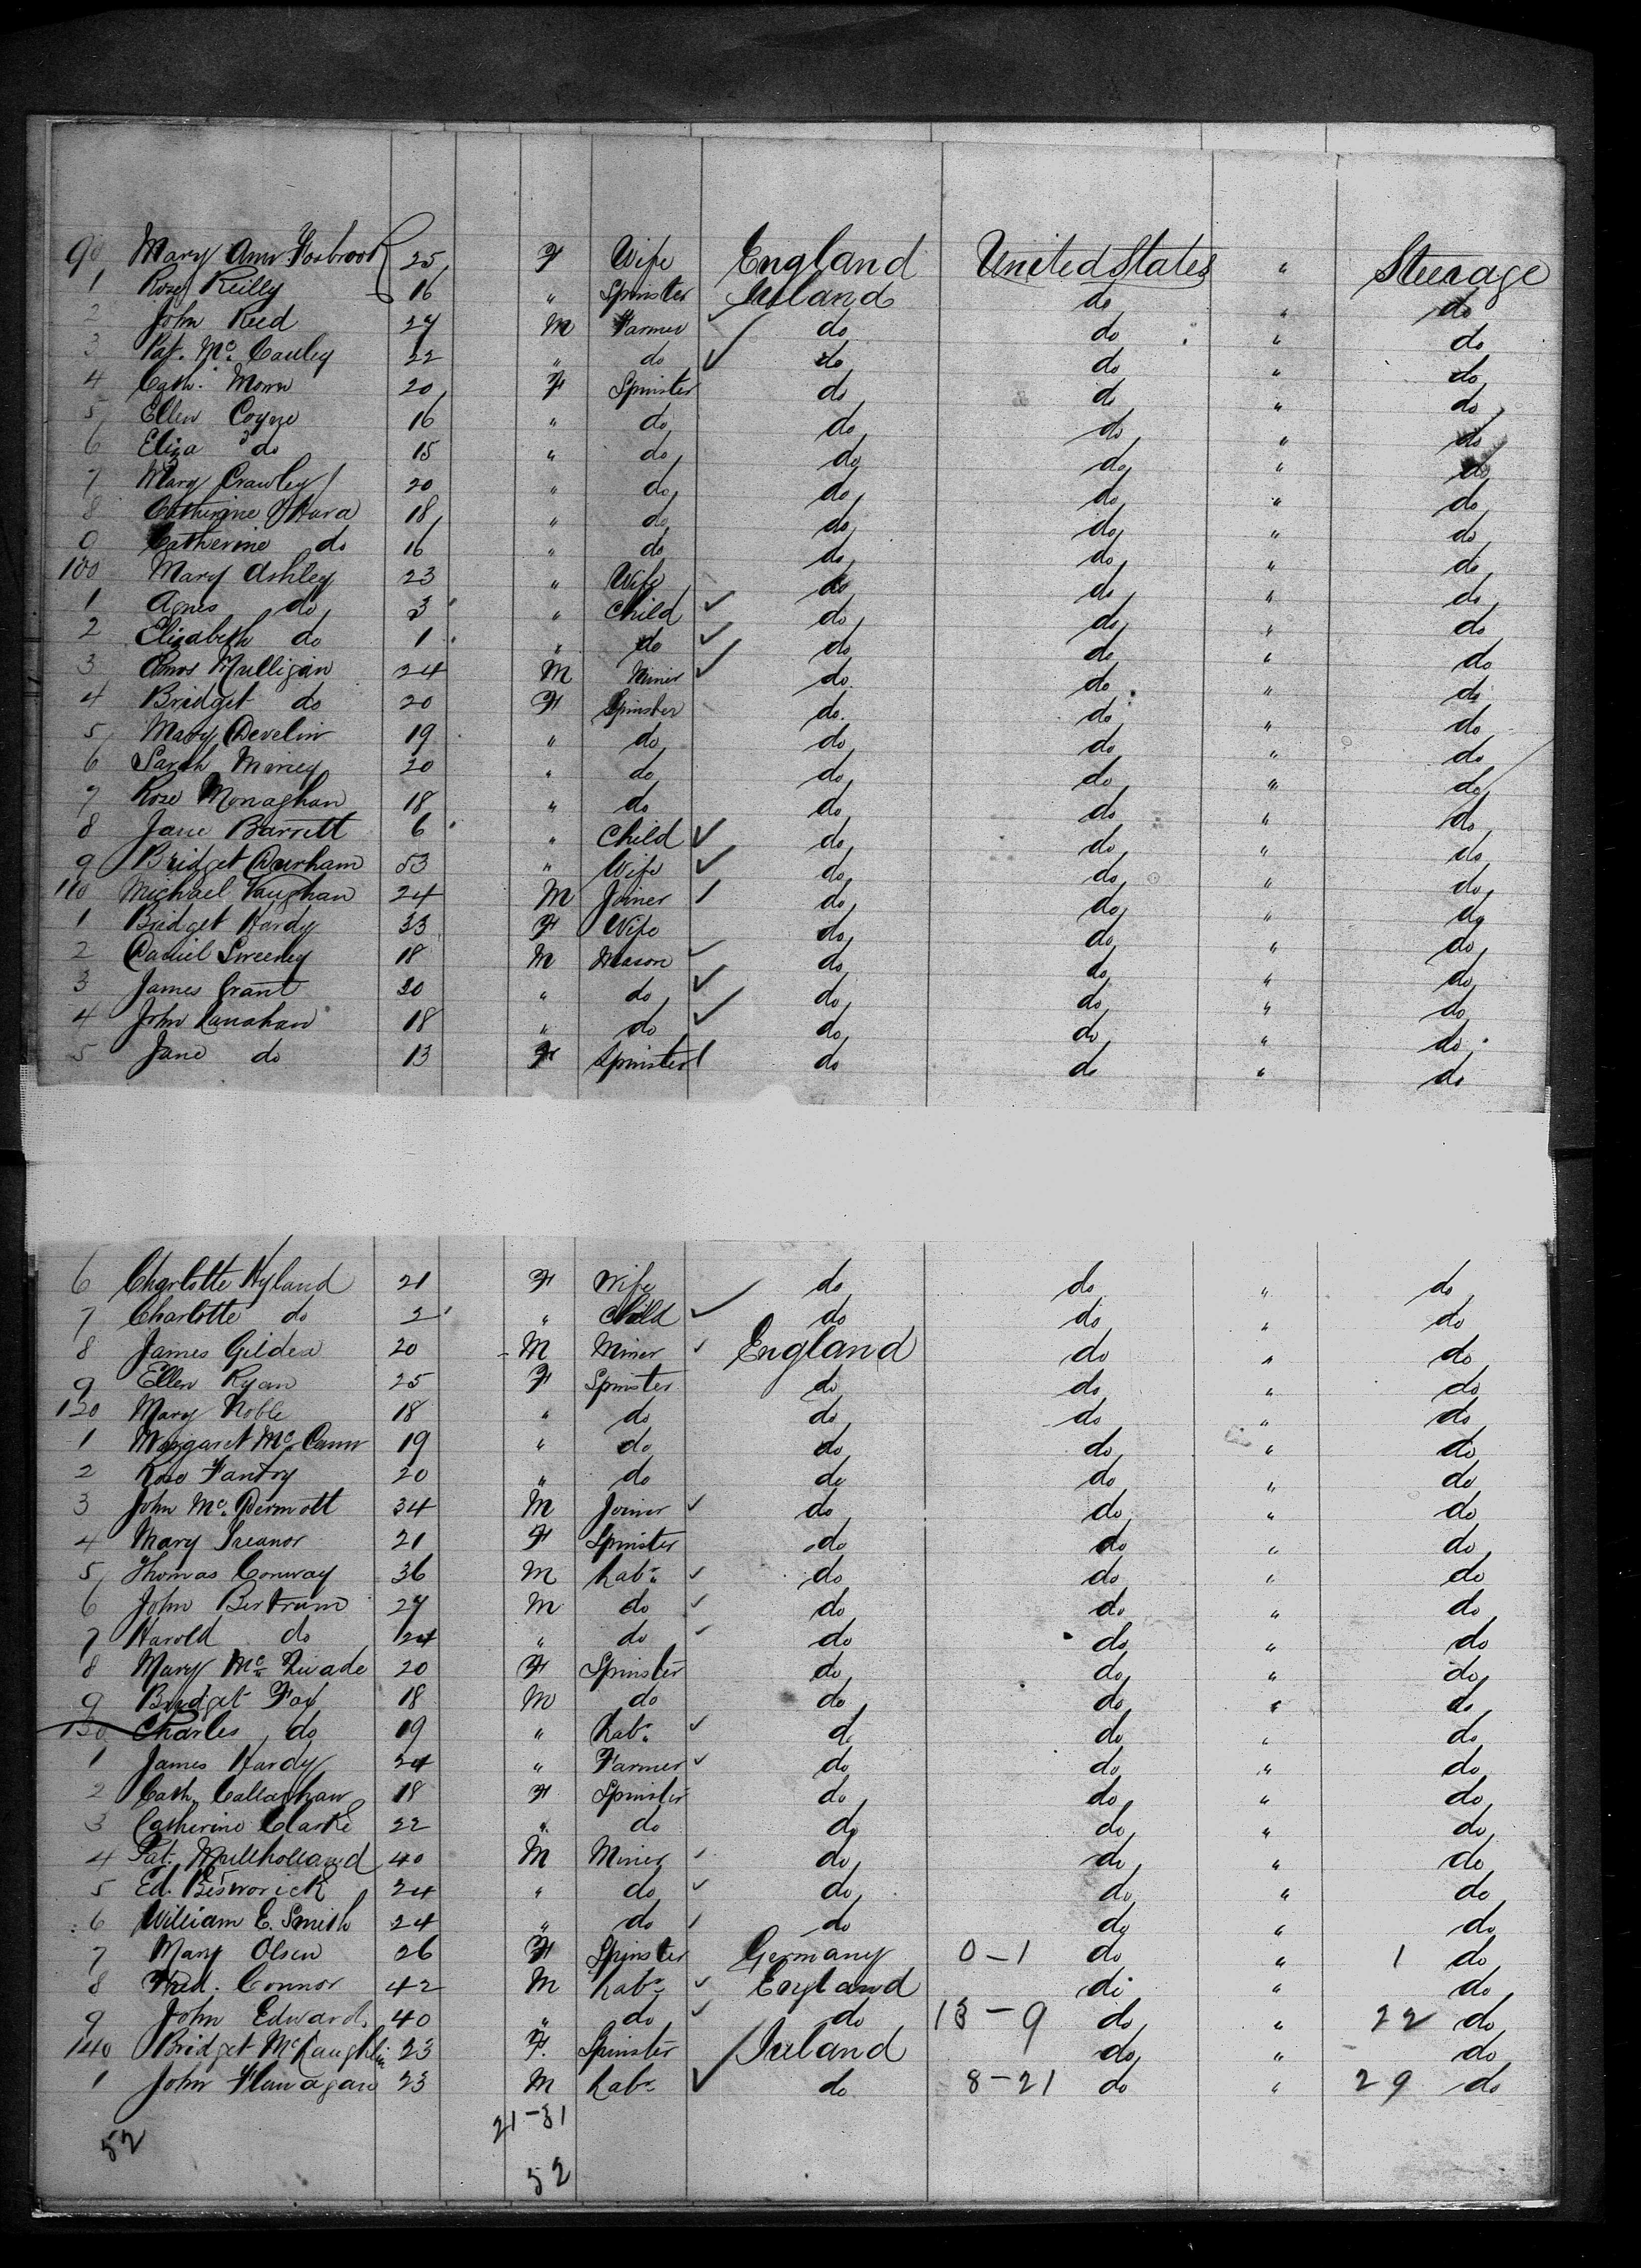 90 Mary Ann Fosbrook 25 F Wife England United States " Steerage
1 Rose Reilly 16 " Spinster Ireland do " do
2 John Reed 27 M Farmer do do " do
3 Pat. Mc. Cauley 22 " do do do " do
4 Cath. Moran 20 F Spinster do do " do
5 Ellen Coyne 16 " do do do " do
6 Eliza do 15 " do do do " do
7 Mary Crawley 20 " do do do " do
8 Catherine O'Hara 18 " do do do " do
9 Catherine do 16 " do do do " do
100 Mary Ashley 23 " Wife do do " do
1 Agnes do 3 " Child do do " do
2 Elizabeth do 1 " do do do " do
3 Mulligan 24 M Miner do do " do
4 Bridget do 20 F Spinster do do " do
5 Mary Develin 19 " do do do " do
6 Sarah 20 " do do do " do
7 Rose Monaghan 18 " do do do " do
8 Jane Barrett 6 " Child do do " do
9 Bridget Durham 53 " Wife do do " do
110 Michael Vaughan 24 M Joiner do do " do
1 Bridget Hardy 33 F Wife do do " do
2 Daniel Sweeney 18 M Mason do do " do
3 James Grant 20 " do do do " do
4 John Lanahan 18 " do do do " do
5 Jane do 13 F Spinster do do " do
6 Charlotte Hyland 21 F Wife do do " do
7 Charlotte do 2 " Child do do " do
8 James Gildea 20 M Miner England do " do
9 Ellen Ryan 25 F Spinster do do " do
120 Mary Noble 18 " do do do " do
1 Margaret Mc. Cann 19 " do do do " do
2 Rose 20 " do do do " do
3 John Mc. Dermott 34 M Joiner do do " do
4 Mary Treanor 21 F Spinster do do " do
5 Thomas Conway 36 M Labr. do do " do
6 John Bertram 27 M do do do " do
7 Harold do 24 " do do do " do
8 Mary Mc. Quade 20 F Spinster do do " do
9 Bridget Fox 18 M do do do " do
130 Charles do 19 " Labr. do do " do
1 James Hardy 24 " Farmer do do " do
2 Cath. Callaghan 18 F Spinster do do " do
3 Catherine Clarke 22 " do do do " do
4 Pat. Mullholland 40 M Miner do do " do
5 Ed. Besworick 24 " do do do " do
6 William E. Smith 24 " do do do " do
7 Mary Olsen 26 F Spinster Germany 0-1 do " 1 do
8 Fred. Connor 42 M Labr. England do " do
9 John Edward 40 " do do 13-9 do " 22 do
140 Bridget McLaughlin 23 F. Spinster Ireland do " do
1 John Flanagan 23 M Labr. do 8-21 do " 29 do
21-31
52
52